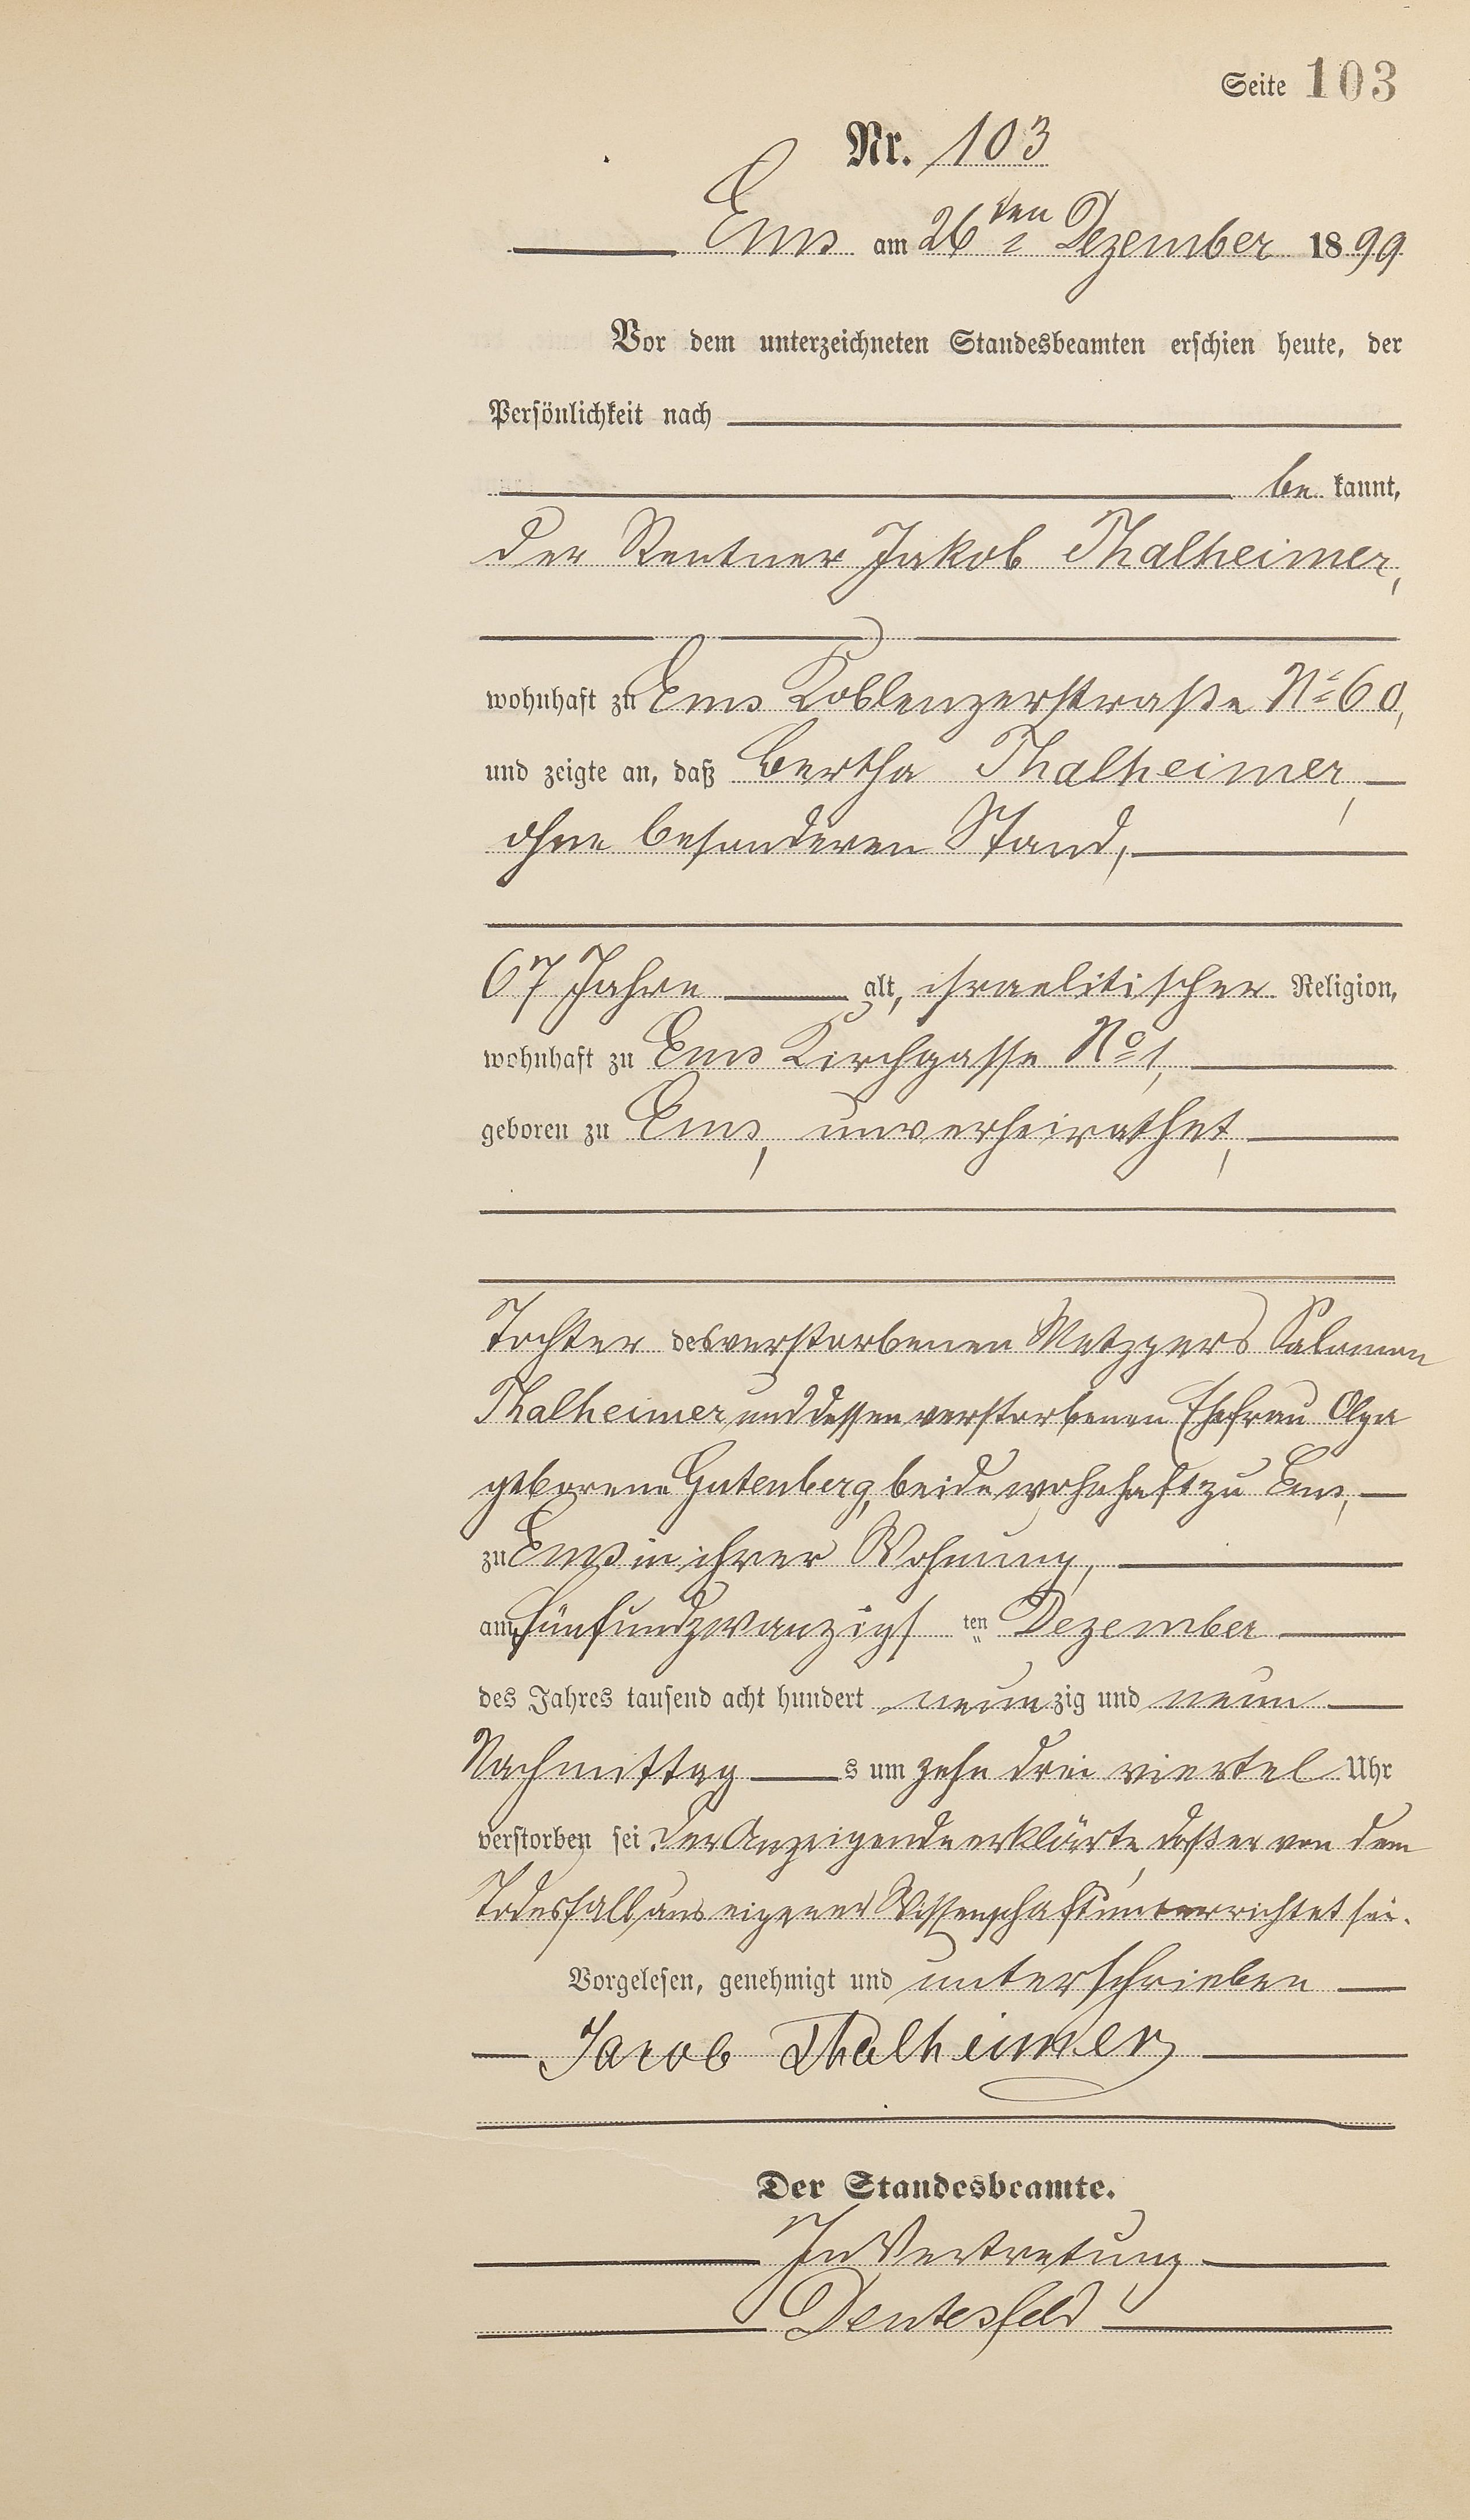 Seite 103
Nr. 103
Ems am 26ten Dezember 1899
Vor dem unterzeichneten Standesbeamten erschien heute, der
Persönlichkeit nach
be kannt,
der Rentner Jakob Thalheimer,
wohnhaft zu Ems Koblenzerstraße No 60,
und zeigte an, daß Bertha Thalheimer,
ohne besonderen Stand,
67 Jahre alt, israelitischer Religion,
wohnhaft zu Ems Kirchgasse No 1,
geboren zu Ems, unverheirathet,
Tochter des verstorbenen Metzgers Salomon
Thalheimer und dessen verstorbenen Ehefrau Olga
geborene Gutenberg, beide wohnhaft zu Ems,
zu Ems in ihrer Wohnung,
am fünfundzwanzigs ten Dezember
des Jahres tausend acht hundert neun zig und neun
Nachmittag s um zehn drei viertel Uhr
verstorben sei. Der Anzeigende erklärte, daß er von dem
Todesfall aus eigener Wissenschaft unterrichtet sei.
Vorgelesen, genehmigt und unterschrieben
Jacob Thalheimer
Der Standesbeamte.
In Vertretung